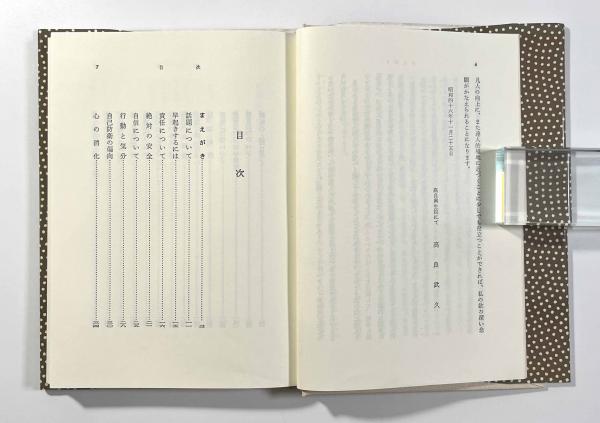 6
凡人の向上に、また達人の境地に近づくことに少しでも役立つことができれば、私の欲の深い念
願がかなえられることになります。
昭和四十六年十一月二十五日
高良興生院にて
高良武久
目次
まえがき
話題について
早起きするには
責任について
絶対の安全
自信について
行動と気分
自己防衛の傾向
心の消化
目次
7